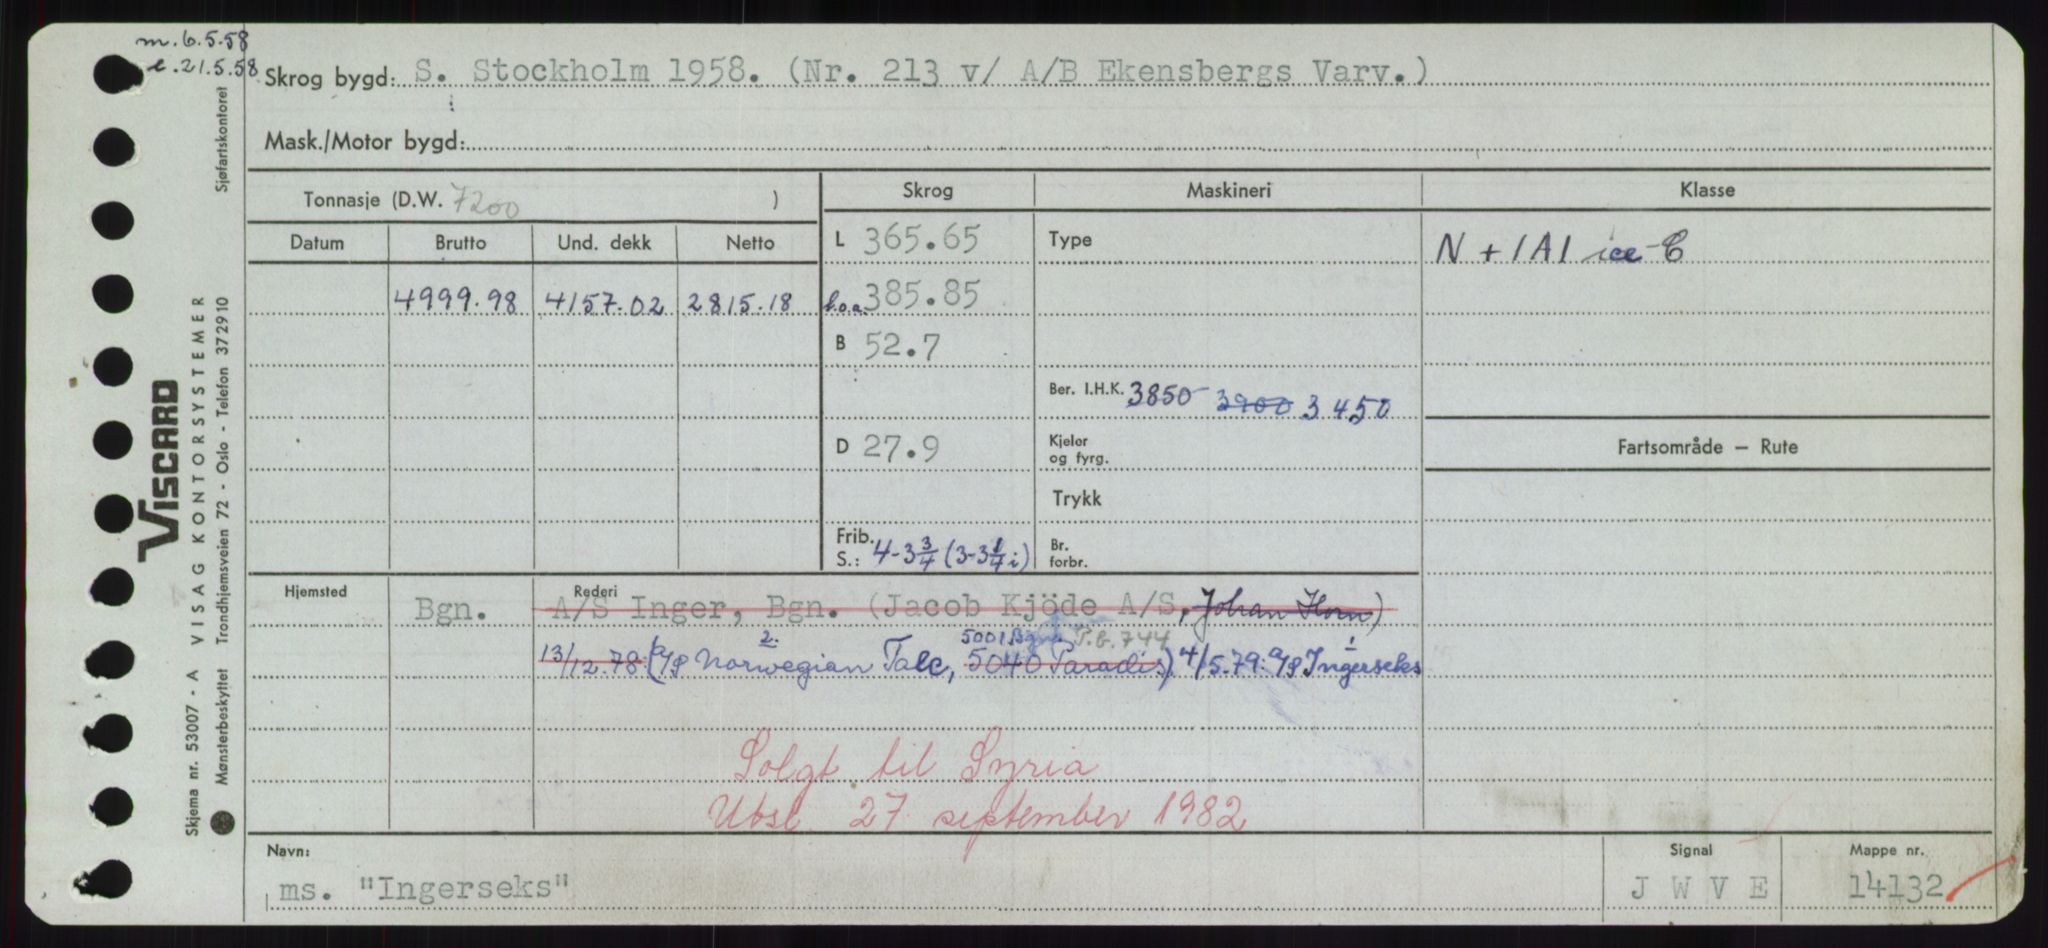 m. 6.5.58
e. 21.5.58
Skrog bygd: S. Stockholm 1958. (Nr. 213 v/ A/B Ekensbergs Varv.)
Mask./Motor bygd:
Tonnasje (D.W. 7200 )
Skrog
Maskineri
Klasse
Datum
Brutto
Und. dekk
Netto
L 365.65
Type
N + 1A1 ice C
4999.98
4157.02
2815.18
l.o.a. 385.85
B 52.7
Ber. I.H.K. 3850 3900 3450
D 27.9
Kjeler
og fyrg.
Fartsområde — Rute
Trykk
Frib.
S.: 4-3 3/4 (3-3 1/4 i)
Br.
forbr.
Hjemsted
Bgn.
Rederi
A/S Inger, Bgn. (Jacob Kjöde A/S, Johan Horn)
2. 5001 Bgn. P.b. 744 1
13/12.78: (A/S Norwegian Talc, 5040 Paradis) 4/5.79: A/S Ingerseks
Solgt til Syria
Utsl. 27 september 1982
Navn:
ms. "Ingerseks"
Signal
J W V E
Mappe nr.
14132
VISCARD
Skjema nr. 53007 - A VISAG KONTORSYSTEMER
Mønsterbeskyttet Trondhjemsveien 72 - Oslo - Telefon 372910
Sjøfartskontoret